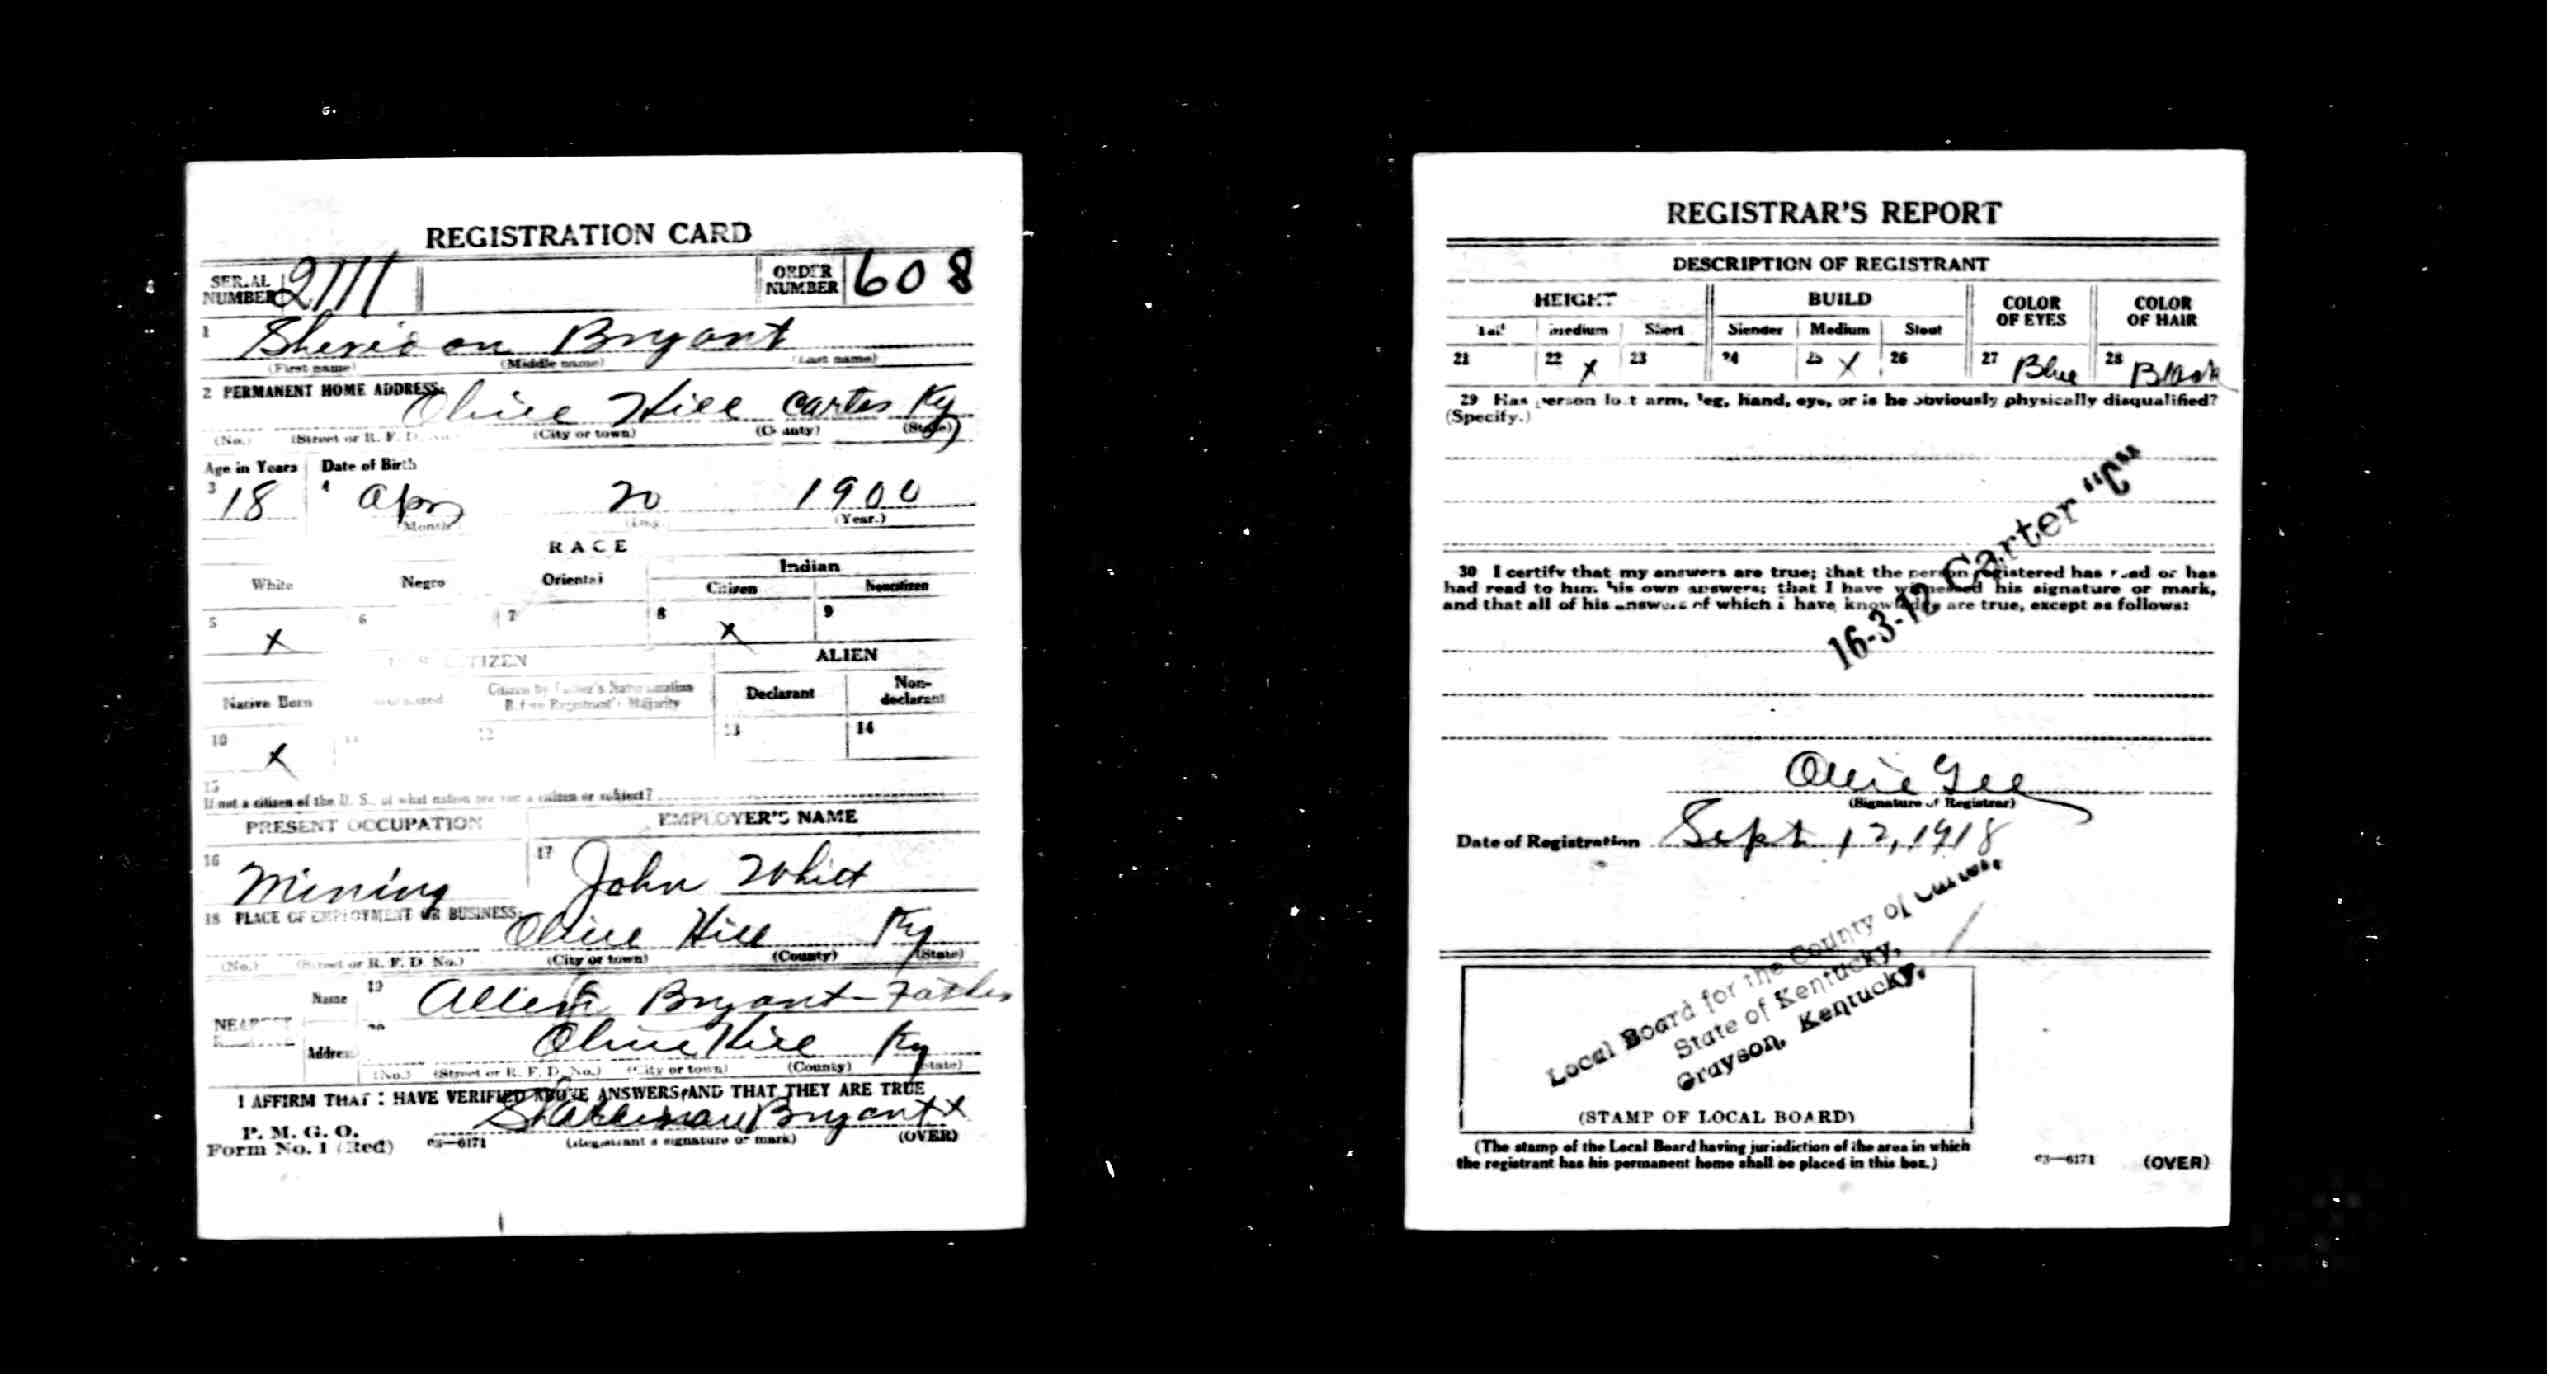 REGISTRATION CARD
SERIAL NUMBER 2111 ORDER NUMBER 608
1 Sheridan Bryant
(First name) (Middle name) (Last name)
2 PERMANENT HOME ADDRESS: Olive Hill Carter Ky
(No.) (Street or R. F. D. No.) (City or town) (County) (State)
Age in Years Date of Birth
3 18 4 Apr 20 1900
(Month) (Day) (Year.)
RACE
White Negro Oriental Indian
Citizen Noncitizen
5 X 6 7 8 X 9
CITIZEN ALIEN
Native Born Citizen by Father's Naturalization Before Registrant's Majority Declarant Non-declarant
10 X 11 12 13 14
15
If not a citizen of the U. S., of what nation are you a citizen or subject?
PRESENT OCCUPATION EMPLOYER'S NAME
16 Mining 17 John Whitt
18 PLACE OF EMPLOYMENT OR BUSINESS: Olive Hill Ky
(No.) (Street or R. F. D. No.) (City or town) (County) (State)
NEAREST
Name 19 Allen Bryant - Father
Address 20 Olive Hill Ky
(No.) (Street or R. F. D. No.) (City or town) (County) (State)
I AFFIRM THAT I HAVE VERIFIED ABOVE ANSWERS AND THAT THEY ARE TRUE
P. M. G. O.
Form No. 1 (Red) 03—6171 Bryant X
(Registrant's signature or mark) (OVER)
REGISTRAR'S REPORT
DESCRIPTION OF REGISTRANT
HEIGHT BUILD COLOR OF EYES COLOR OF HAIR
Tall Medium Short Slender Medium Stout
21 22 X 23 24 25 X 26 27 Blue 28 Black
29 Has person lost arm, leg, hand, eye, or is he obviously physically disqualified?
(Specify.)
16-3-12 Carter "C"
30 I certify that my answers are true; that the person registered has read or has
had read to him his own answers; that I have witnessed his signature or mark,
and that all of his answers of which I have knowledge are true, except as follows:
Ollie Gee
(Signature of Registrar)
Date of Registration Sept 12, 1918
Local Board for the County of Carter
State of Kentucky,
Grayson, Kentucky.
(STAMP OF LOCAL BOARD)
(The stamp of the Local Board having jurisdiction of the area in which
the registrant has his permanent home shall be placed in this box.)
03—6171 (OVER)